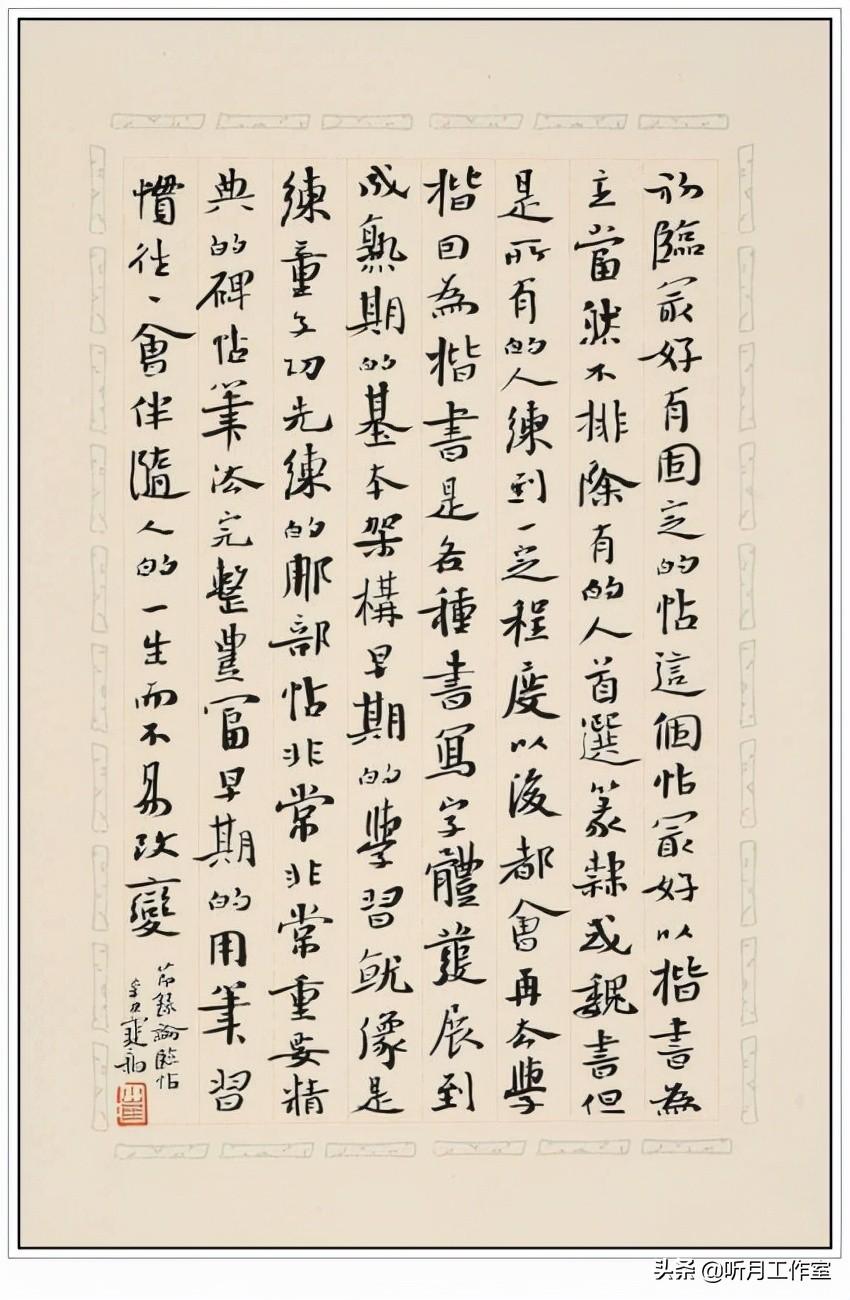 初臨最好有固定的帖這個帖最好以楷書為
主當然不排除有的人首選篆隸或魏書但
是所有的人練到一定程度以後都會再去學
楷因為楷書是各種書寫字體發展到
成熟期的基本架構早期的學習就像是
練童子功先練的那部帖非常非常重要精
典的碑帖筆法完整豐富早期的用筆習
慣往、會伴隨人的一生而不易改變
節錄論臨帖
辛丑
头条 @听月工作室